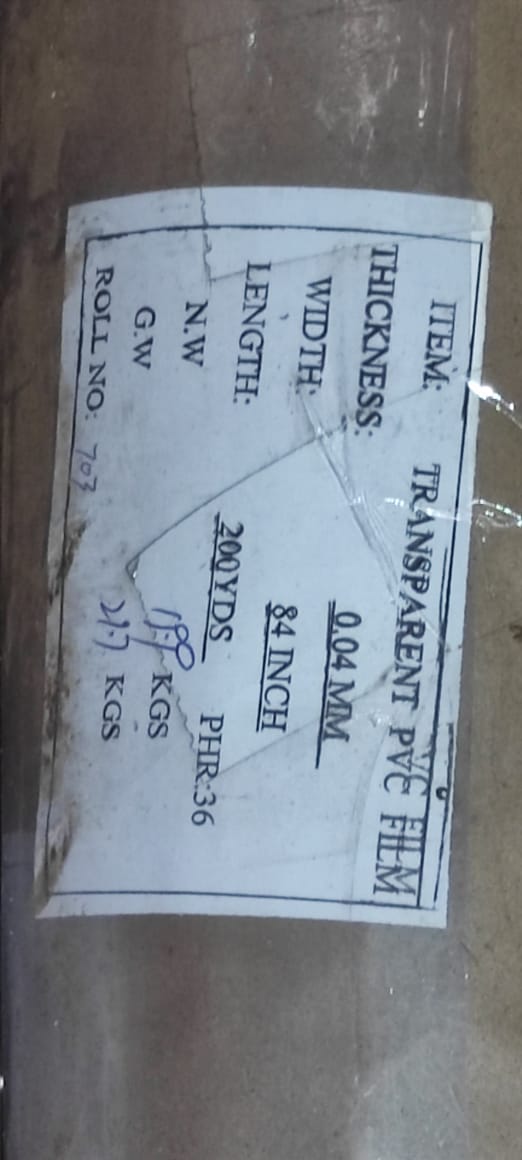 ITEM: TRANSPARENT PVC FILM
THICKNESS: 0.04 MM
WIDTH: 84 INCH
LENGTH: 200YDS PHR:36
N.W KGS
G.W 21.7 KGS
ROLL NO: 703